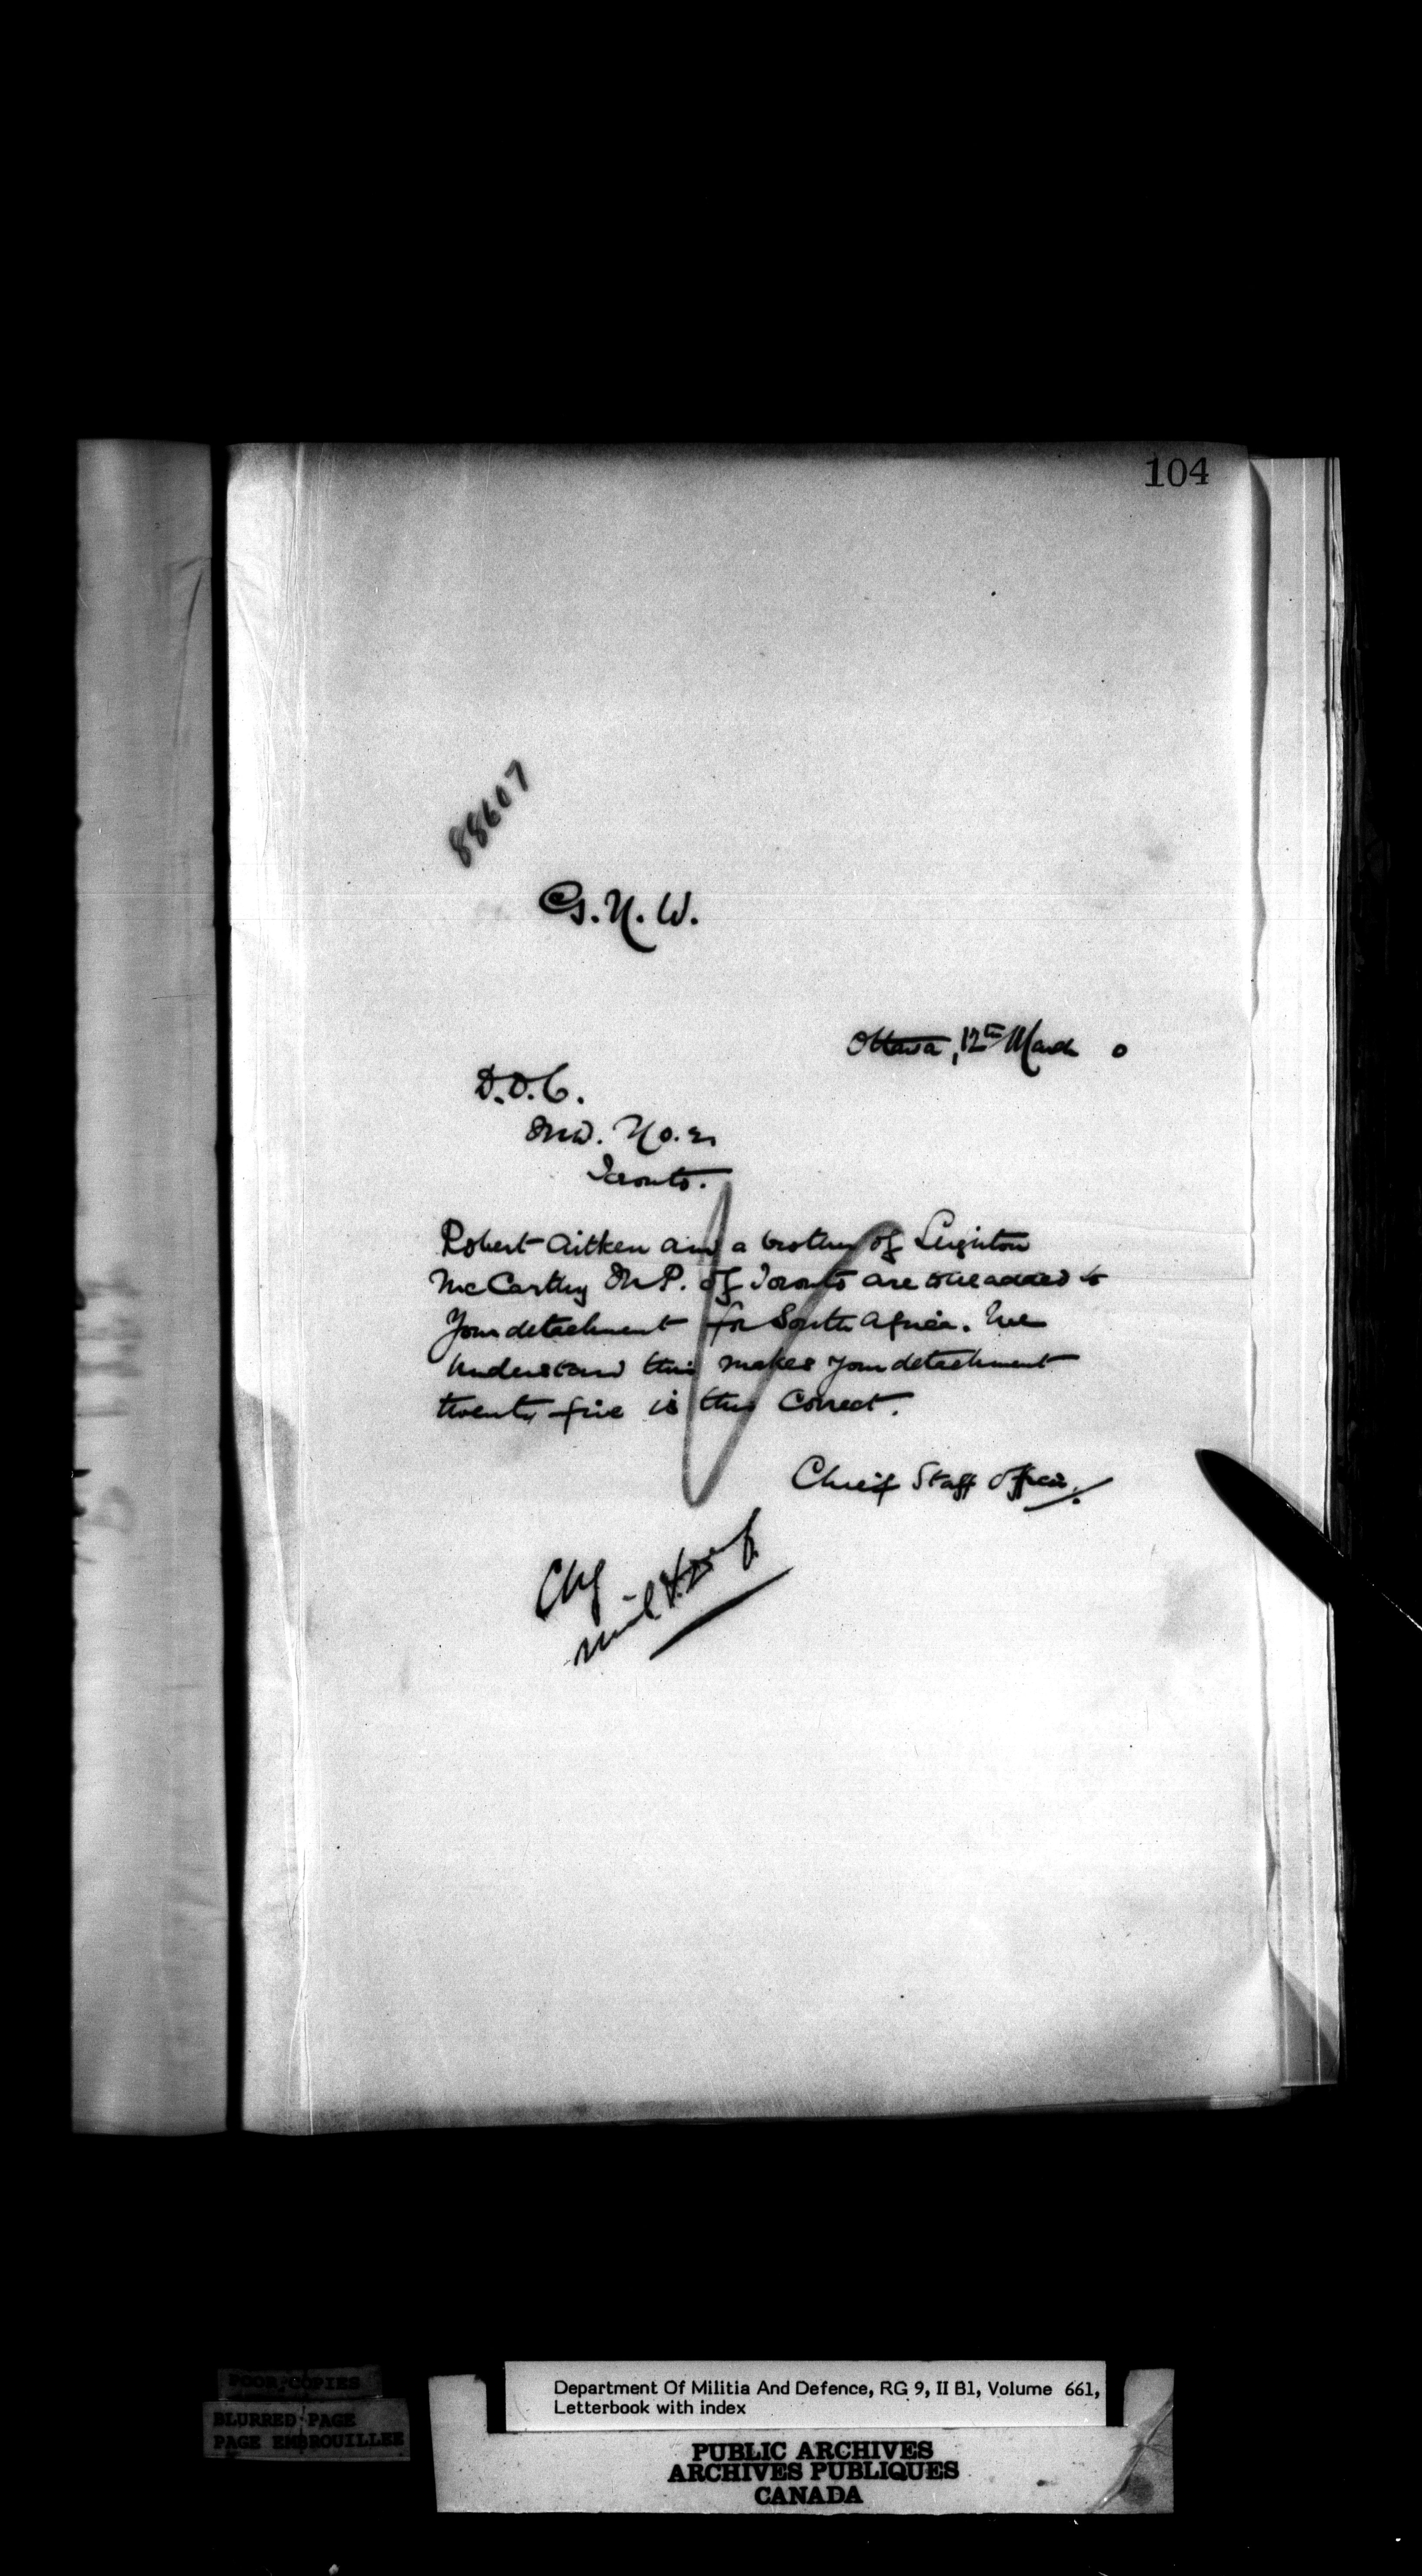 104
88607
G.N.W.
Ottawa, 12th March 0
D.O.C.
M.D. No. 2
Toronto.
Robert Aitken and a brother of Leighton
McCarthy M.P. of Toronto are to be added to
Your detachment for South Africa. We
understand this makes your detachment
twenty five is this Correct.
Chief Staff Officer.
Chg
Mil & Def
POOR COPIES
BLURRED PAGE
PAGE EMBROUILLEE
Department Of Militia And Defence, RG 9, II B1, Volume 661,
Letterbook with index
PUBLIC ARCHIVES
ARCHIVES PUBLIQUES
CANADA